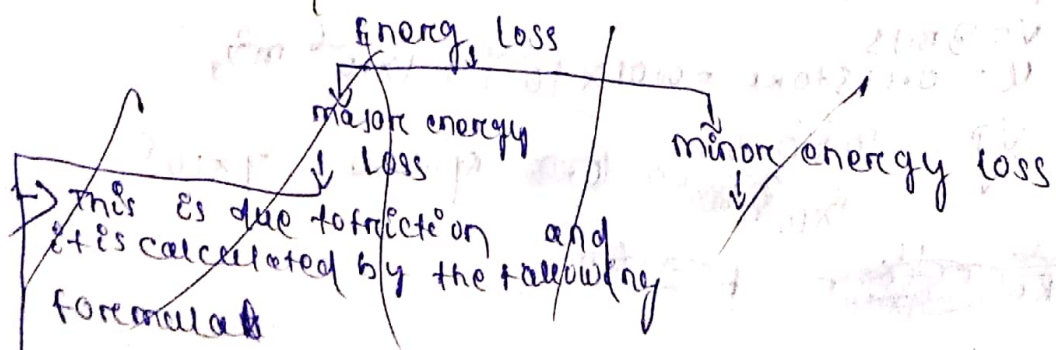 Energy Loss
major energy
loss
minor energy loss
This is due to friction and
it is calculated by the following
formula